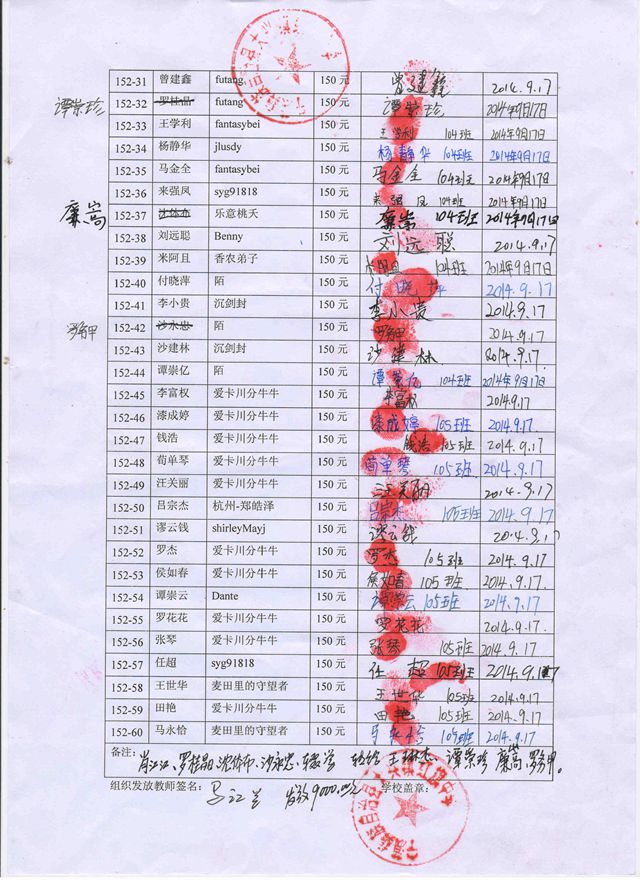 152-31 曾建鑫 futang 150 元 曾建鑫 2014.9.17
谭崇珍 152-32 罗桂晶 futang 150 元 谭崇珍 2014年9月17日
152-33 王学利 fantasybei 150 元 王学利 104班 2014年9月17日
152-34 杨静华 jlusdy 150 元 杨静华 104班 2014年9月17日
152-35 马金全 fantasybei 150 元 马金全 104班 2014年9月17日
152-36 来强凤 syg91818 150 元 来强凤 104班 2014年9月17日
廉嵩 152-37 沈体布 乐意桃夭 150 元 廉嵩 104班 2014年9月17日
152-38 刘远聪 Benny 150 元 刘远聪 2014.9.17
152-39 米阿且 香农弟子 150 元 米阿且 104班 2014年9月17日
152-40 付晓萍 陌 150 元 付晓萍 2014.9.17
152-41 李小贵 沉剑封 150 元 李小贵 2014.9.17
罗有甲 152-42 沙永忠 陌 150 元 罗有甲 2014.9.17
152-43 沙建林 沉剑封 150 元 沙建林 2014.9.17
152-44 谭崇亿 陌 150 元 谭崇亿 104班 2014年9月17日
152-45 李富权 爱卡川分牛牛 150 元 李富权 2014.9.17
152-46 漆成婷 爱卡川分牛牛 150 元 漆成婷 105班 2014.9.17.
152-47 钱浩 爱卡川分牛牛 150 元 钱浩 105班 2014.9.17
152-48 荀单琴 爱卡川分牛牛 150 元 荀单琴 105班 2014.9.17
152-49 汪关丽 爱卡川分牛牛 150 元 汪关丽 2014.9.17
152-50 吕宗杰 杭州-郑皓泽 150 元 吕宗杰 105班 2014.9.17
152-51 谬云钱 shirleyMayj 150 元 谬云钱 2014.9.17
152-52 罗杰 爱卡川分牛牛 150 元 罗杰 105班 2014.9.17
152-53 侯如春 爱卡川分牛牛 150 元 侯如春 105班 2014.9.17.
152-54 谭崇云 Dante 150 元 谭崇云 105班 2014.9.17
152-55 罗花花 爱卡川分牛牛 150 元 罗花花 2014.9.17.
152-56 张琴 爱卡川分牛牛 150 元 张琴 105班 2014.9.17
152-57 任超 syg91818 150 元 任超 105班 2014.9.17
152-58 王世华 麦田里的守望者 150 元 王世华 105班 2014.9.17
152-59 田艳 爱卡川分牛牛 150 元 田艳 105班 2014.9.17
152-60 马永恰 麦田里的守望者 150 元 105班 2014.9.17
备注: 罗桂晶、沈体布、沙永忠、 谭崇珍 廉嵩、罗有甲。
组织发放教师签名: 发放9000.00元 学校盖章: